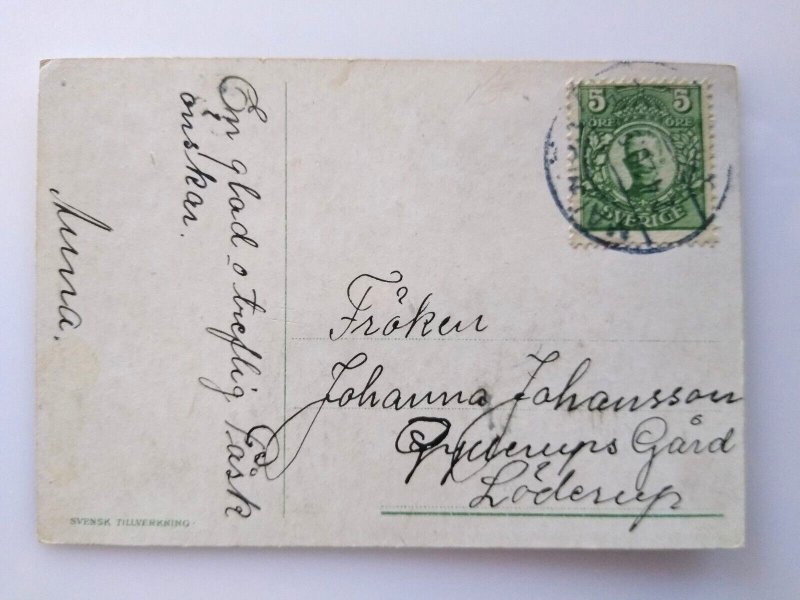 En glad o treflig Påsk
önskar.
Anna.
SVENSK TILLVERKNING
5 5
ÖRE ÖRE
SVERIGE
Fröken
Johanna Johansson
Gård
Löderup